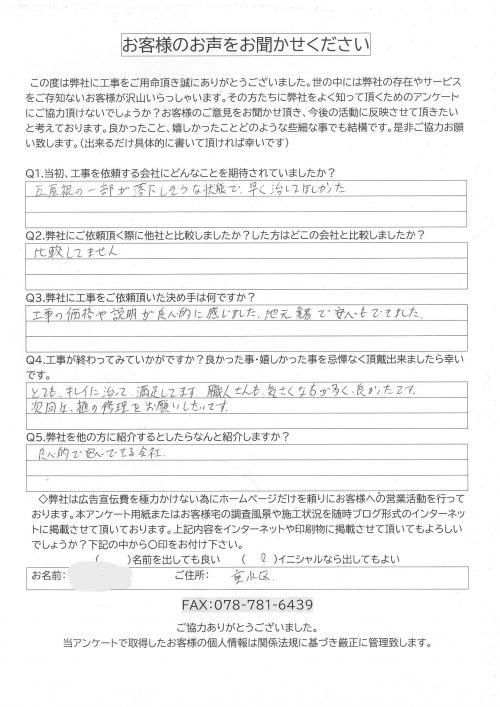 お客様のお声をお聞かせください
この度は弊社に工事をご用命頂き誠にありがとうございました。世の中には弊社の存在やサービス
をご存知ないお客様が沢山いらっしゃいます。その方たちに弊社をよく知って頂くためのアンケート
にご協力頂けないでしょうか？お客様のご意見をお聞かせ頂き、今後の活動に反映させて頂きたい
と考えております。良かったこと、嬉しかったことどのような些細な事でも結構です。是非ご協力お願
い致します。（出来るだけ具体的に書いて頂ければ幸いです）
Q1.当初、工事を依頼する会社にどんなことを期待されていましたか？
瓦屋根の一部が落下しそうな状態で、早く治してほしかった
Q2.弊社にご依頼頂く際に他社と比較しましたか？した方はどこの会社と比較しましたか？
比較してません
Q3.弊社に工事をご依頼頂いた決め手は何ですか？
工事の価格や説明が良心的に感じました、地元 で安心もできました。
Q4.工事が終わってみていかがですか？良かった事・嬉しかった事を忌憚なく頂戴出来ましたら幸い
です。
とても、キレイに治って、満足してます。職人さんも、気さくな方が多く、良かったです。
次回は、樋の修理をお願いしたいです。
Q5.弊社を他の方に紹介するとしたらなんと紹介しますか？
良心的で安心できる会社。
◇弊社は広告宣伝費を極力かけない為にホームページだけを頼りにお客様への営業活動を行って
おります。本アンケート用紙またはお客様宅の調査風景や施工状況を随時ブログ形式のインターネッ
トに掲載させて頂いております。上記内容をインターネットや印刷物に掲載させて頂いてもよろしい
でしょうか？下記の中から〇印をお付け下さい。
（　）名前を出しても良い　（ 〇 ）イニシャルなら出してもよい
お名前：　ご住所：　垂水区
FAX:078-781-6439
ご協力ありがとうございました。
当アンケートで取得したお客様の個人情報は関係法規に基づき厳正に管理致します。